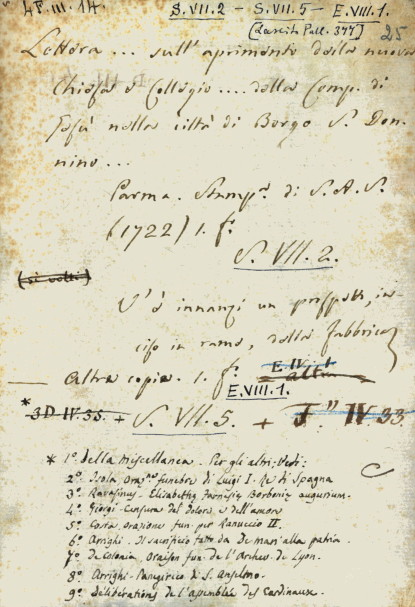 4F.III.14. S.VII.2 - S.VII.5 - E.VIII.1.
[Lascito Pall. 377] 25
Lettera ... sull' aprimento della nuova
Chiesa e Collegio .... della Comp. di
Gesù nella città di Borgo S. Don-
nino ...
Parma. Stamp.ª di S.A.S.
(1722) 1. f.º
S. VII. 2.
(si volti)
V'è innanzi un prospetto, in-
ciso in rame, della fabbrica
E. IV. 1
Altra copia. 1. f.º altra
E.VIII.1.
* 3D IV 35. + S. VII. 5. + F." IV 33.
* 1º della miscellanea. Per gli altri: Vedi:
2º. Isola Oraz.ne funebre di Luigi I. Re di Spagna
3º. Ravasinus. Elisabetha Farnesia Borboniae augurium.
4º. Giorgi. Censura del dolore e dell'amore
5º. Costa, orazione fun. per Ranuccio II.
6º. Arrighi. Il sacrificio fatto da de mari alla patria.
7º. de Colonia. Oraison fun. de l'Archev. de Lyon.
8º. Arrighi. Panegirico di S. Anselmo.
9º. délibérations de l'assemblée des Cardinaux.